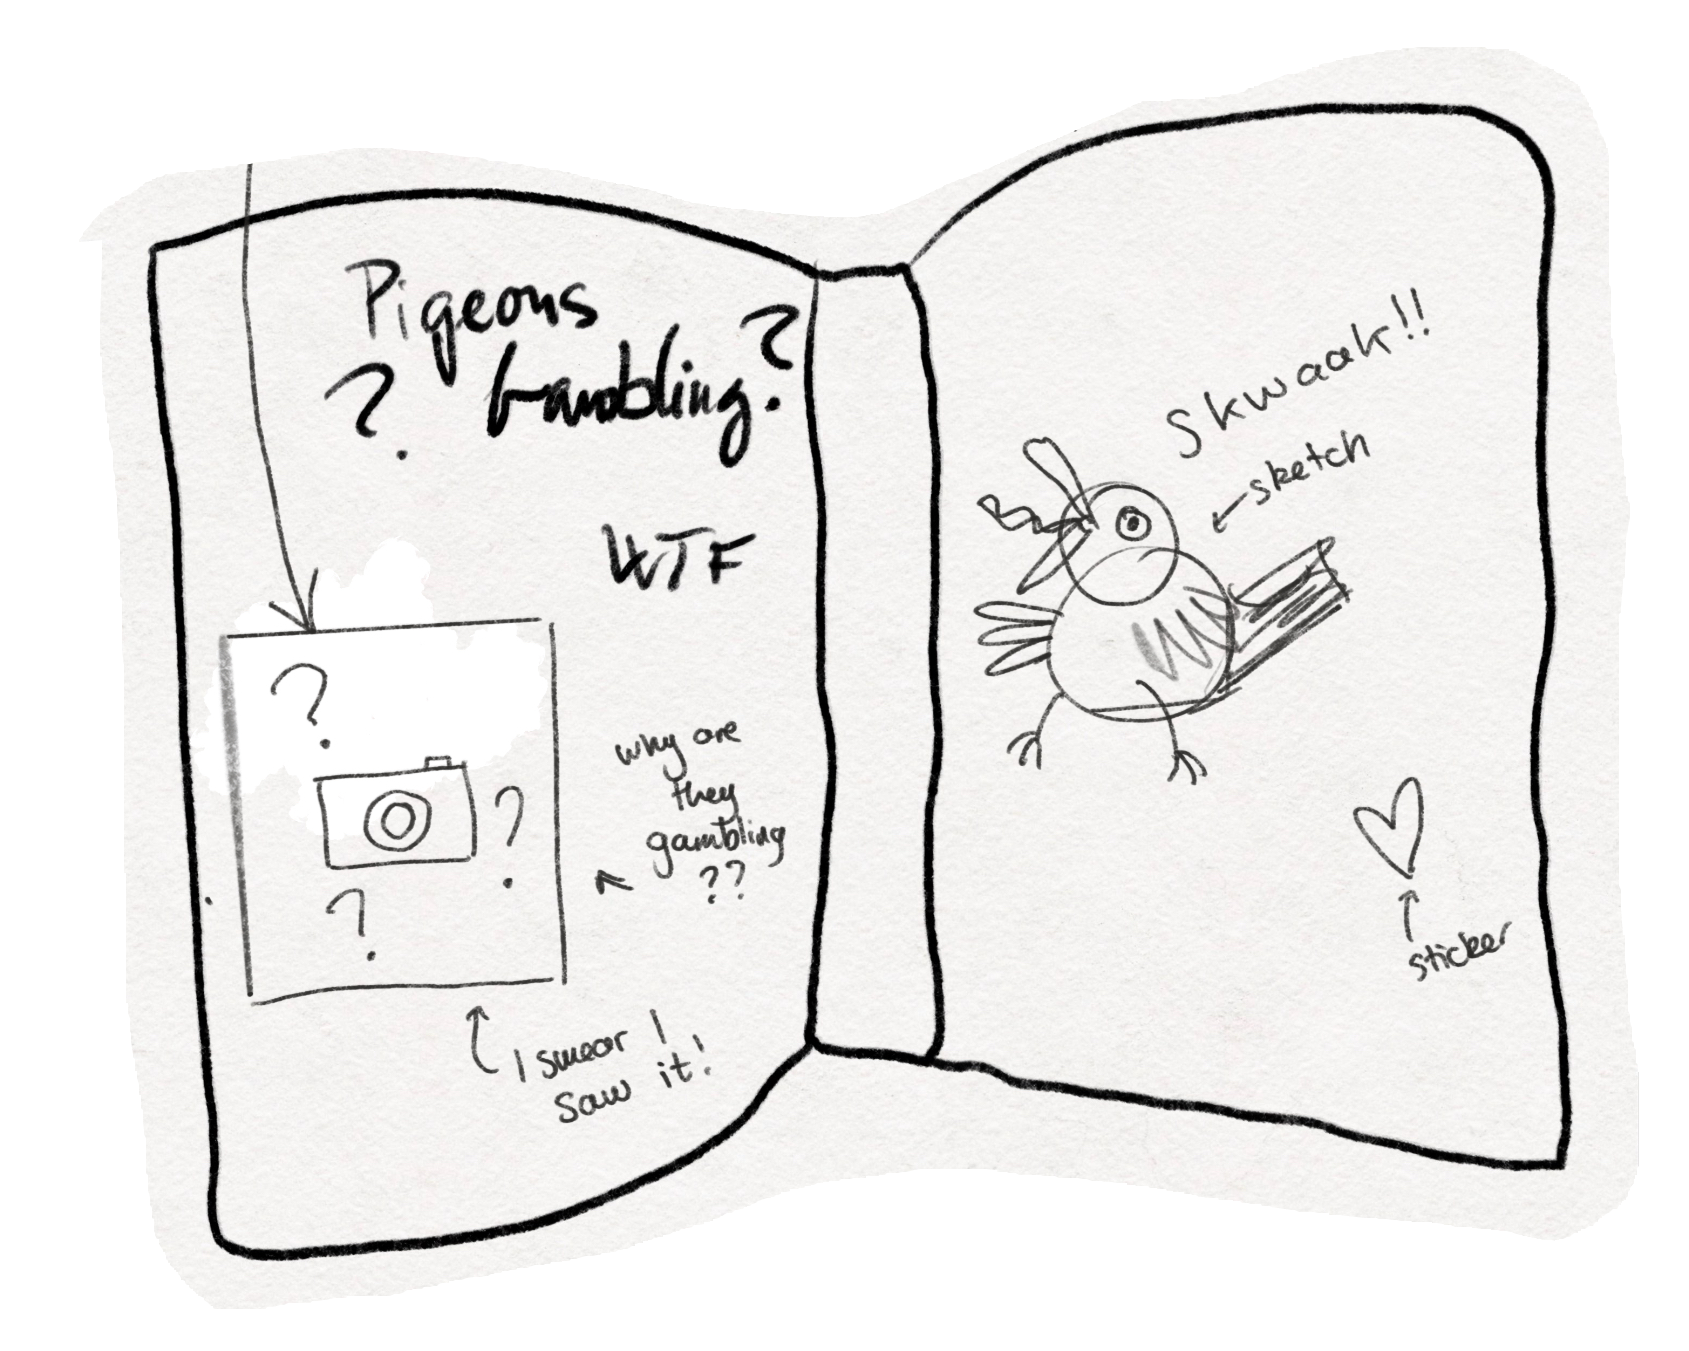 Pigeons
? Gambling?
WTF
?
?
?
why are
they
gambling
??
I swear I
saw it!
Skwaak!!
sketch
sticker